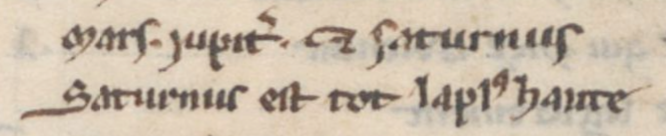 mars. iupit᷑. ⁊ saturnus
Saturnus est tot lapl⁹ haute